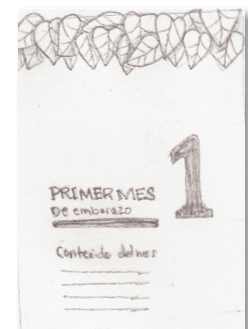 1
PRIMER MES
De embarazo
Contenido del mes